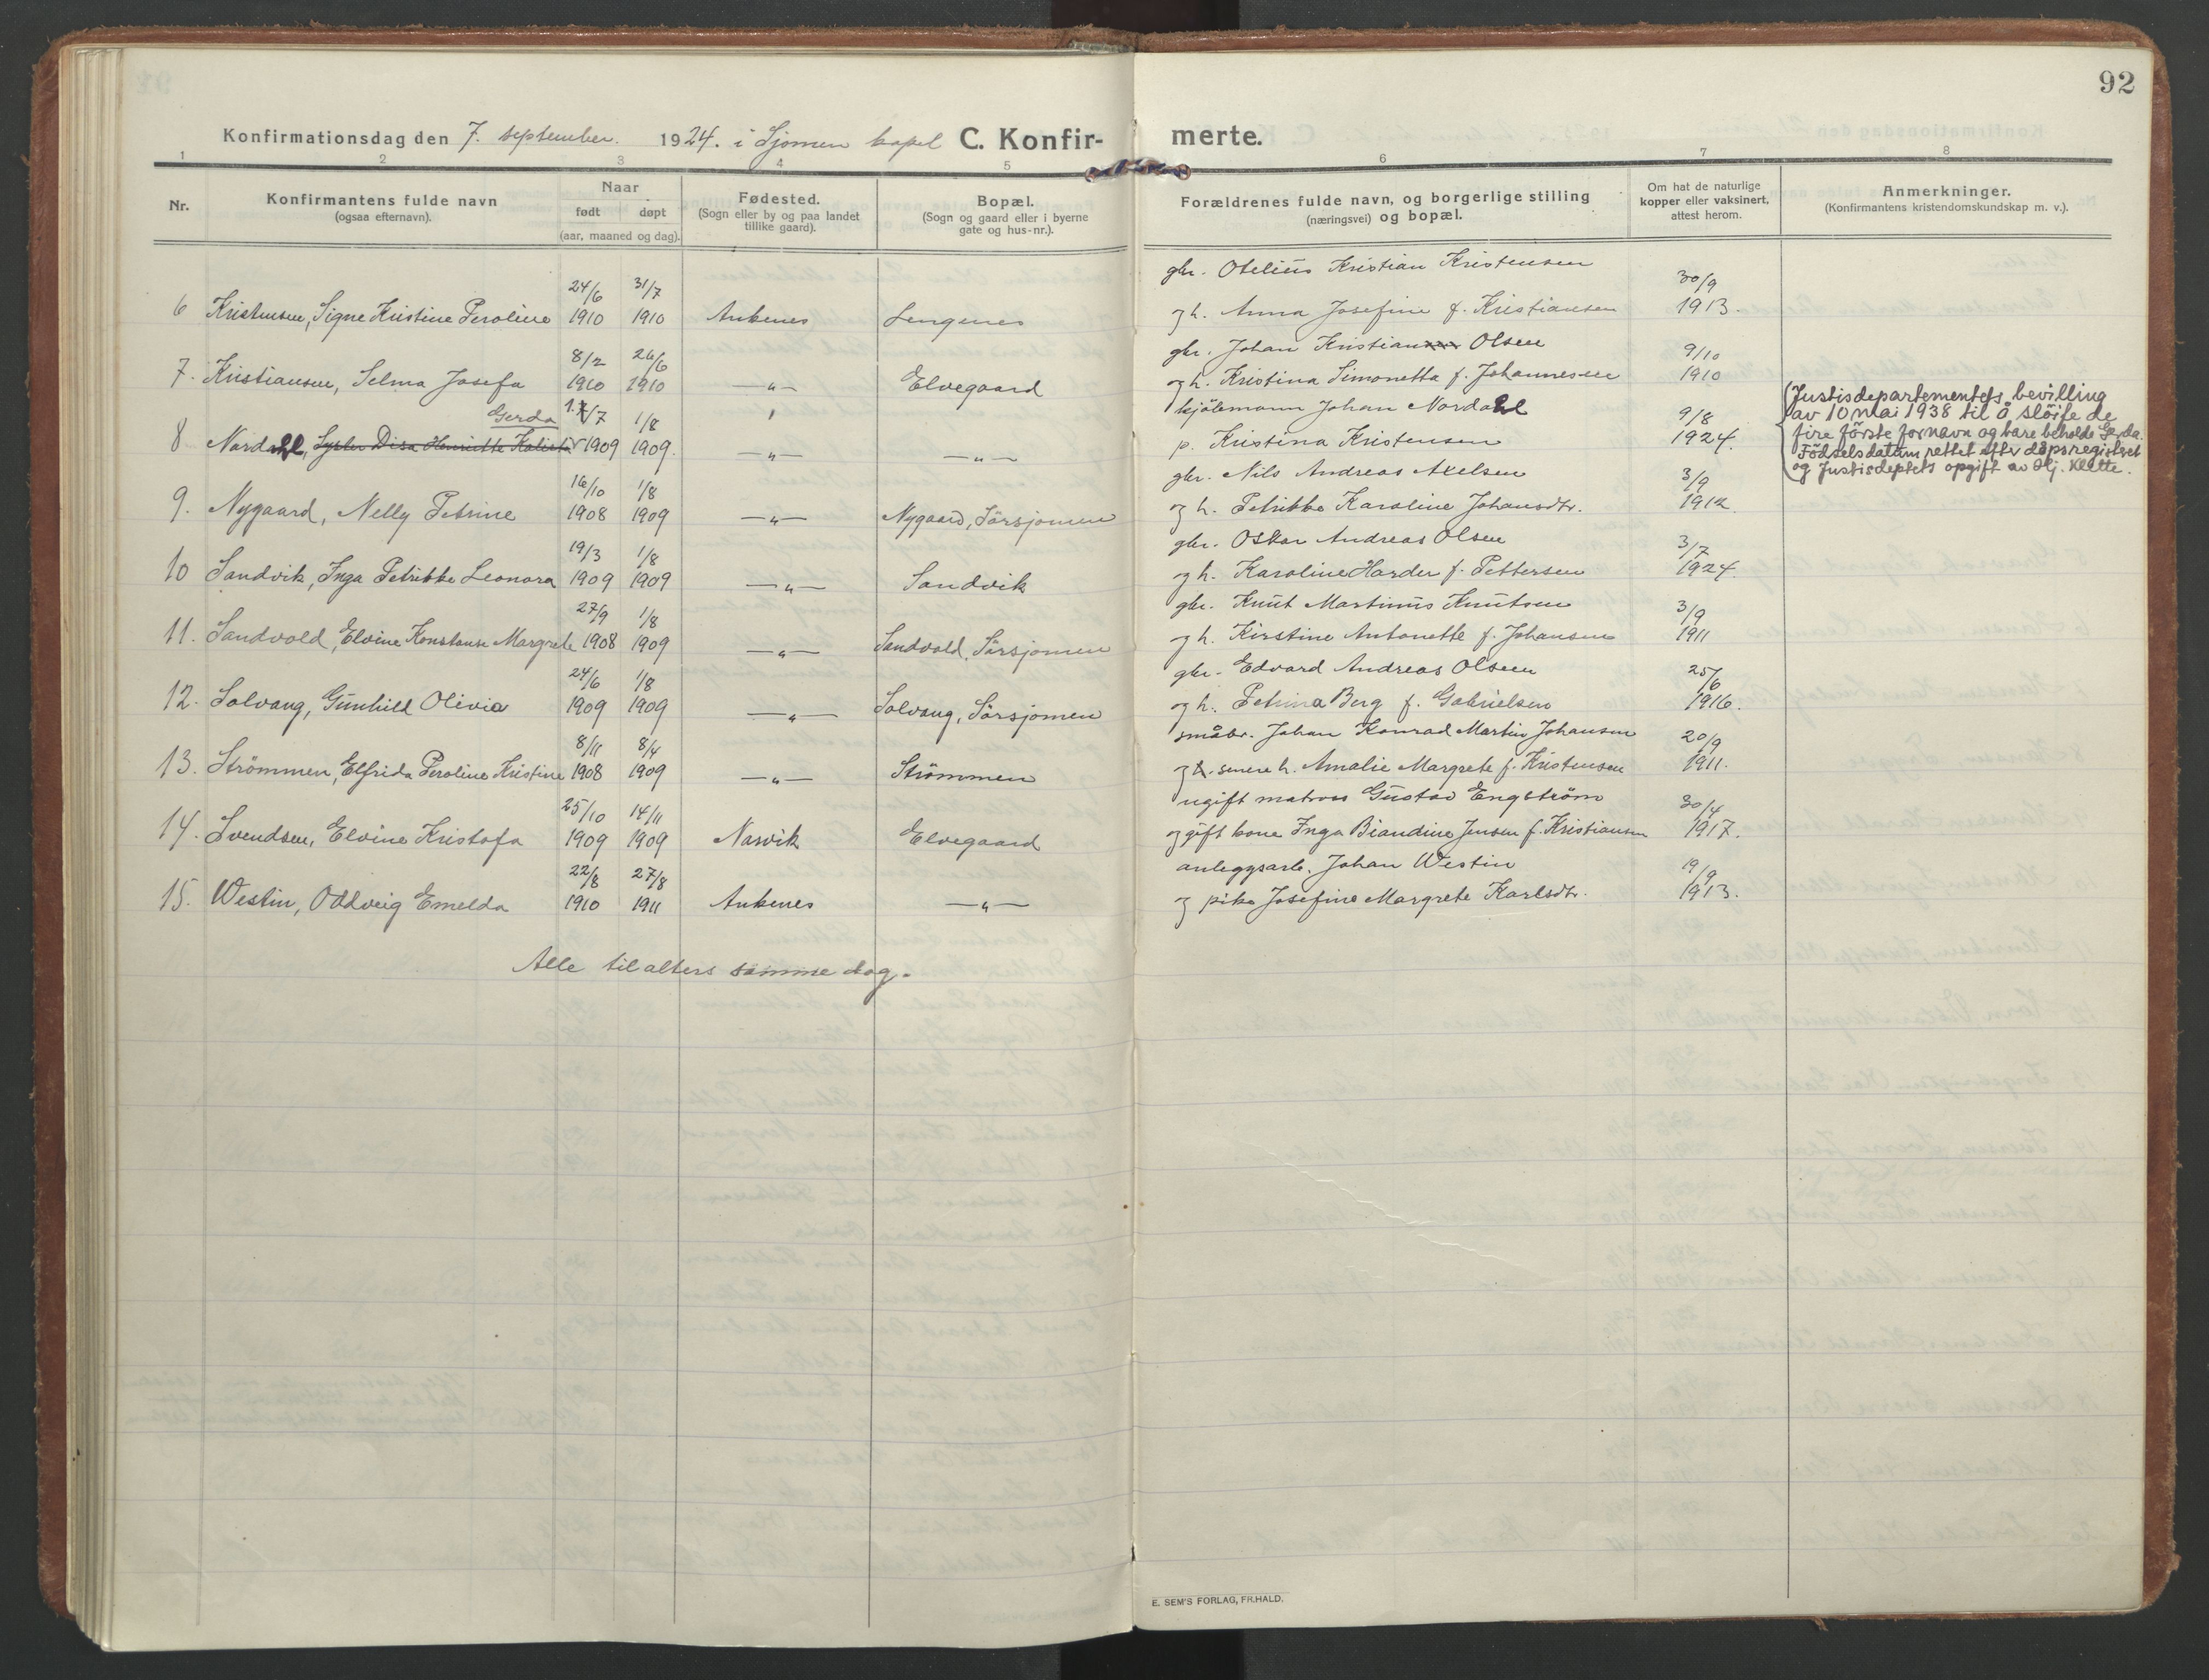 92
Konfirmationsdag den 7. september. 1924. i Sjomen kapel C. Konfir-merte.
1 2 3 4 5 6 7 8
Nr.
Konfirmantens fulde navn
(ogsaa efternavn).
Naar
født døpt
(aar, maaned og dag).
Fødested.
(Sogn eller by og paa landet
tillike gaard).
Bopæl.
(Sogn og gaard eller i byerne
gate og hus-nr.).
Forældrenes fulde navn, og borgerlige stilling
(næringsvei) og bopæl.
Om hat de naturlige
kopper eller vaksinert,
attest herom.
Anmerkninger.
(Konfirmantens kristendomskundskap m. v.).
24/6 31/7 gbr. Otelius Kristian Kristensen 30/9
6 Kristensen, Signe Kristine Peroline 1910 1910 Ankenes Lengenes og h. Anna Josefine f. Kristiansen 1913.
8/2 26/6 gbr. Johan Kristian Olsen 9/10
7. Kristiansen, Selma Josefa 1910 1910 —„— Elvegaard og h. Kristina Simonetta f. Johannesen 1910
Gerda /7 1/8 kjölemann Johan Nordahl 9/8
8 Nordahl, Disa Henriette 1909 1909. —„— —„— p. Kristina Kristensen 1924.
(Justisdepartementets bevilling
av 10 mai 1938 til å slöife de
fire förste fornavn og bare beholde Gerda.
Födselsdatum rettet efter dåpsregisteret
og Justisdeptets opgift av Hj. Klette.
16/10 1/8 gbr. Nils Andreas Axelsen 3/9
9. Nygaard, Nelly Petrine 1908 1909 —„— Nygaard, Sörsjomen og h. Petrikke Karoline Johansdtr. 1912
19/3 1/8 gbr. Oskar Andreas Olsen 3/7
10 Sandvik, Inga Petrikke Leonora 1909 1909 —„— Sandvik og h. Karoline Harder f. Pettersen 1924.
27/9 1/8 gbr. Knut Martinus Knutsen 3/9
11. Sandvold, Elvine Konstanse Margrete 1908 1909 —„— Sandvold, Sörsjomen og h. Kirstine Antonette f. Johansen 1911
24/6 1/8 gbr. Edvard Andreas Olsen 25/6
12. Solvang, Gunhild Olivia 1909 1909 —„— Solvang, Sörsjomen og h. Petrina Berg f. Gabrielsen 1916.
8/11 8/4 småbr. Johan Konrad Martin Johansen 20/9
13. Strömmen, Elfrida Peroline Kristine 1908 1909 —„— Strömmen og senere h. Amalie Margrete f. Kristensen 1911.
25/10 14/11 ugift matros Gustav Engström 30/4
14. Svendsen, Elvine Kristofa 1909 1909 Narvik Elvegaard og gift kone Inga Biandine Jensen f. Kristiansen 1917.
22/8 27/8 anleggsarb. Johan Westin 19/9
15. Westin, Oddveig Emelda 1910 1911 Ankenes —„— og pike Josefine Margrete Karlsdtr. 1913.
Alle til alters samme dag.
E. SEM'S FORLAG, FR.HALD.